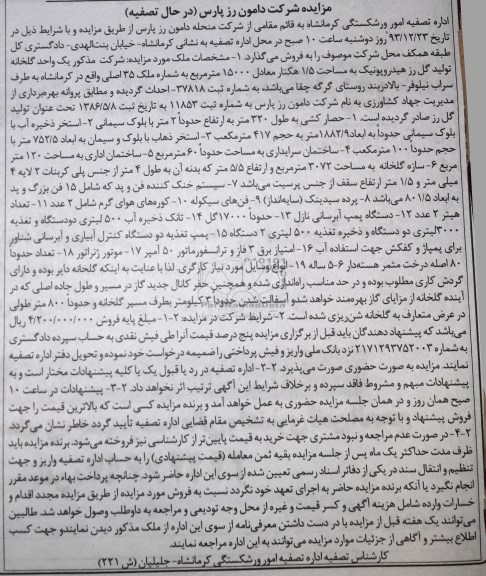 مزایده شرکت دامون رز پارس (در حال تصفیه)
اداره تصفیه امور ورشکستگی کرمانشاه به قائم مقامی از شرکت منحله دامون رز پارس از طریق مزایده و با شرایط ذیل در
تاریخ ۹۳/۱۲/۲۳ روز دوشنبه ساعت ۱۰ صبح در محل اداره تصفیه به نشانی کرمانشاه- خیابان بنت‌الهدی- دادگستری کل
طبقه همکف محل شرکت موصوف را به فروش می‌گذارد. ۱- مشخصات ملک مورد مزایده: شرکت مذکور یک واحد گلخانه
تولید گل رز هیدروپونیک به مساحت ۱/۵ هکتار معادل ۱۵۰۰۰ مترمربع به شماره ملک ۳۵ اصلی واقع در کرمانشاه به طرف
سراب نیلوفر- بالادربند روستای گرگه چقا می‌باشد، به شماره ثبت ۳۷۸۱۸- احداث گردیده و مطابق پروانه بهره‌برداری از
مدیریت جهاد کشاورزی به نام شرکت دامون رز پارس به شماره ثبت ۱۱۸۵۳ به تاریخ ثبت ۱۳۸۶/۵/۸ تحت عنوان تولید
گل رز صادر گردیده است. ۱- حصار کشی به طول ۳۲۰ متر به ارتفاع حدوداً ۲ متر با بلوک سیمانی ۲- استخر ذخیره آب با
بلوک سیمانی حدوداً به ابعاد ۱۸۸۲/۹ متر به حجم ۴۱۷ مترمکعب ۳- استخر ذهاب با بلوک و سیمان به ابعاد ۷۵۲/۵ متر با
حجم حدوداً ۱۰۰ مترمکعب ۴- ساختمان سرایداری به مساحت حدوداً ۶۰ مترمربع ۵- ساختمان اداری به مساحت ۱۲۰ متر
مربع ۶- سازه گلخانه به مساحت ۳۰۷۲ مترمربع و ارتفاع ۵/۵ متر که بدنه آن به طول ۴ متر از جنس پلی کربنات ۲ لایه ۴
میلی متر و ۱/۵ متر ارتفاع سقف از جنس پرسیت می‌باشد ۷- سیستم خنک کننده فن و پد که شامل ۱۵ فن بزرگ و پد
به ابعاد ۸۰۱/۵ می‌باشد ۸- پرده سیدینگ (سایه‌انداز) ۹- فن‌های سیکوله ۱۰- کوره‌های هوای گرم شامل ۲ عدد ۱۱- تعداد
هیتر ۲ عدد ۱۲- دستگاه پمپ آبرسانی نازل ۱۳- حدوداً ۱۷۰۰۰ گل ۱۴- تانک ذخیره آب ۵۰۰ لیتری دودستگاه و تغذیه
۳۰۰۰ لیتری دو دستگاه و ذخیره تغذیه ۵۰۰ لیتری ۲ دستگاه ۱۵- پمپ تغذیه دو دستگاه کنترل آبیاری و آبرسانی شناور
برای پمپاژ و کفکش جهت استفاده آب ۱۶- امتیاز برق ۳ فاز و ترانسفورماتور ۵۰ آمپر ۱۷- موتور ژنراتور ۱۸- تعداد حدوداً
۸۰ اصله درخت مثمر هسته‌دار ۶-۵ ساله ۱۹- انواع وسایل مورد نیاز کارگری. لذا با عنایت به اینکه گلخانه دایر بوده و دارای
گردش کاری مطلوب بوده و در حد مناسب راه‌اندازی شده و همچنین حفر کانال جدید گاز در مسیر و طول جاده اصلی که در
آینده گلخانه از مزایای گاز بهره‌مند خواهد شد و آسفالت شدن حدوداً ۳ کیلومتر بطرف مسیر گلخانه و حدوداً ۸۰۰ متر طولی
در عرض متعارف به گلخانه شن‌ریزی شده است. ۲- شرایط شرکت در مزایده: ۱-۲- مبلغ پایه فروش ۴/۲۰۰/۰۰۰/۰۰۰ ریال
می‌باشد که پیشنهاد دهندگان باید قبل از برگزاری مزایده پنج درصد قیمت آنرا طی فیش نقدی به حساب سپرده دادگستری
به شماره ۲۱۷۱۲۹۳۷۵۲۰۰۳ نزد بانک ملی واریز و فیش پرداختی را ضمیمه درخواست خود نموده و تحویل دفتر اداره تصفیه
نمایند. مزایده به صورت حضوری صورت می‌پذیرد. ۲-۲- اداره تصفیه در رد یا قبول یک یا کلیه پیشنهادات مختار است و به
پیشنهادات مبهم و مشروط فاقد سپرده و برخلاف شرایط این آگهی ترتیب اثر نخواهد داد. ۳-۲- پیشنهادات در ساعت ۱۰
صبح همان روز و در همان جلسه مزایده حضوری به عمل خواهد آمد و برنده مزایده کسی است که بالاترین قیمت را جهت
فروش پیشنهاد و با توجه به مصلحت هیات غرمایی به تشخیص مقام قضایی اداره تصفیه تأیید گردد خاطر نشان می‌گردد.
۴-۲- در صورت عدم مراجعه و نبود مشتری جهت خرید به قیمت پایین‌تر از کارشناسی نیز فروخته می‌شود. برنده مزایده باید
ظرف مدت حداکثر یک ماه پس از جلسه مزایده بقیه ثمن معامله (قیمت پیشنهادی) را به حساب اداره تصفیه واریز و جهت
تنظیم و انتقال سند در یکی از دفاتر اسناد رسمی تعیین شده از سوی این اداره حاضر شود. چنانچه پرداخت بهاء در موعد مقرر
انجام نگیرد یا آنکه برنده مزایده حاضر به اجرای تعهد خود نگردد نسبت به فروش مورد مزایده از طریق مزایده مجدد اقدام و
خسارات وارده شامل هزینه آگهی و کسر قیمت و غیره از محل وجه تودیعی و مراجعه به داوطلب وصول خواهد شد. طالبین
می‌توانند یک هفته قبل از مزایده با در دست داشتن معرفی‌نامه از سوی این اداره از ملک مذکور دیدن نمایند و جهت کسب
اطلاع بیشتر و آگاهی از جزئیات موارد مزایده می‌توانند به این اداره مراجعه نمایند.
کارشناس تصفیه اداره تصفیه امور ورشکستگی کرمانشاه- جلیلیان (ش ۲۲۱)